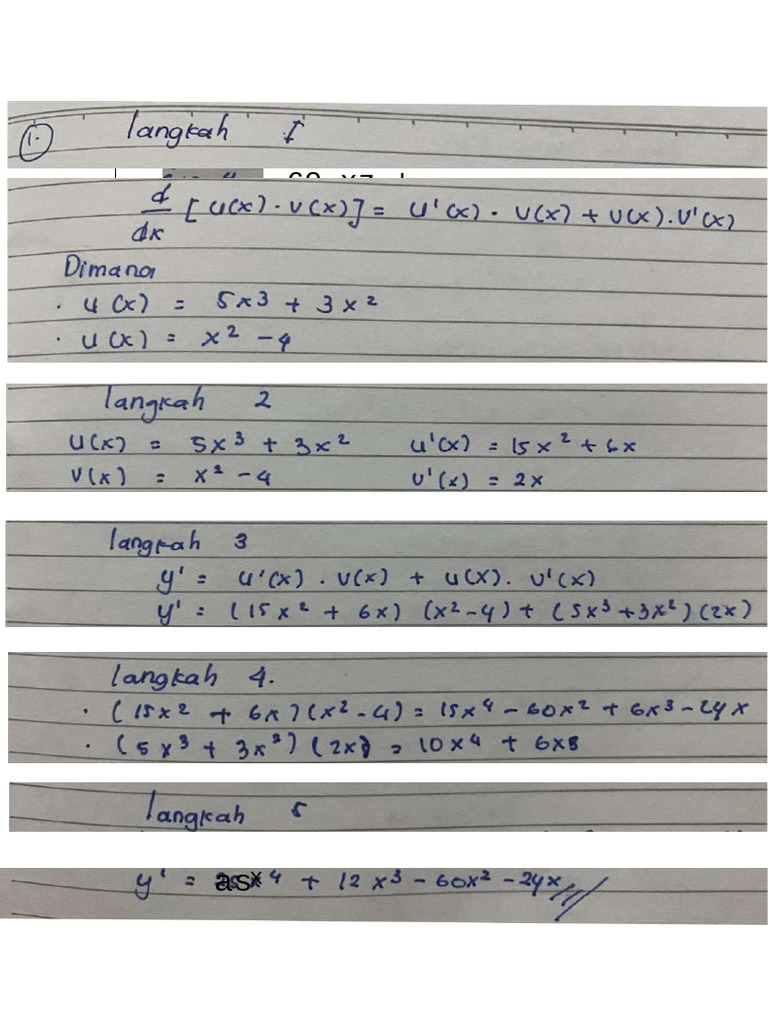 1. langkah I
d/dx [u(x) · v(x)] = u'(x) · v(x) + u(x) . v'(x)
Dimana
· u(x) = 5x³ + 3x²
· u(x) = x² - 4
langkah 2
u(x) = 5x³ + 3x² u'(x) = 15x² + 6x
v(x) = x² - 4 v'(x) = 2x
langkah 3
y' = u'(x) . v(x) + u(x) . v'(x)
y' = (15x² + 6x) (x² - 4) + (5x³ + 3x²) (2x)
langkah 4.
· (15x² + 6x) (x² - 4) = 15x⁴ - 60x² + 6x³ - 24x
· (5x³ + 3x²) (2x) = 10x⁴ + 6x3
langkah 5
y' = asx⁴ + 12x³ - 60x² - 24x